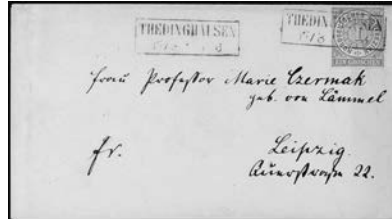 THEDINGHAUSEN
THEDIN
Frau Professor Marie Czermak
geb. von Lämmel
fr.
Leipzig.
22.